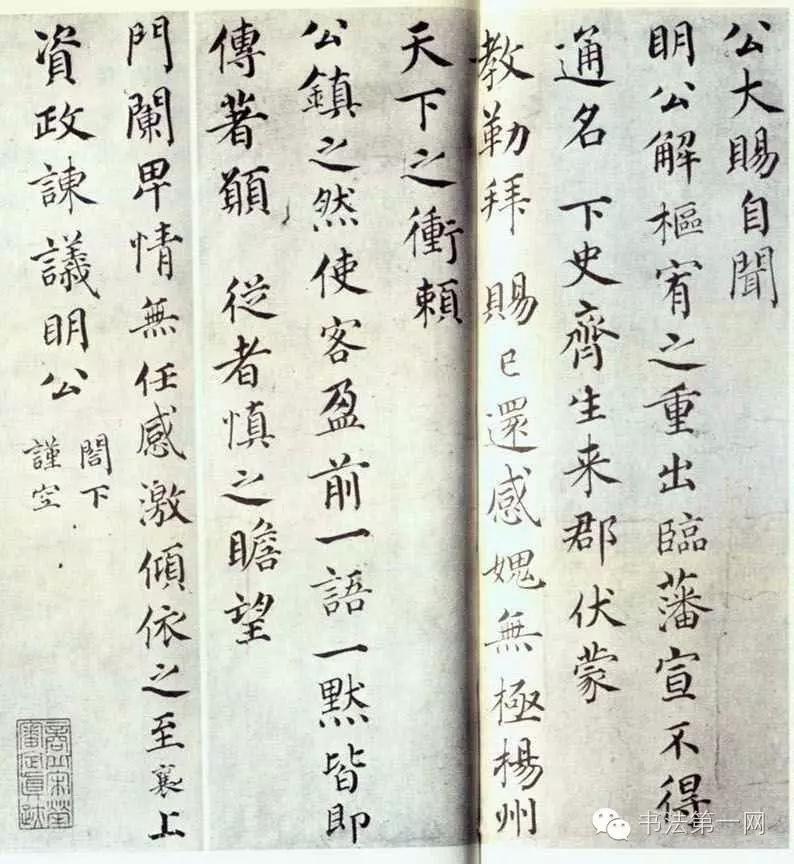 公大賜自聞
明公解樞宥之重出臨藩宣不得
通名 下史齊生来郡伏蒙
教勒拜 賜已還感媿無極楊州
天下之衝頼
公鎮之然使客盈前一語一黙皆即
傳著顓 従者慎之瞻望
門闌卑情無任感激傾依之至襄上
資政諌議明公
閤下
謹空
书法第一网